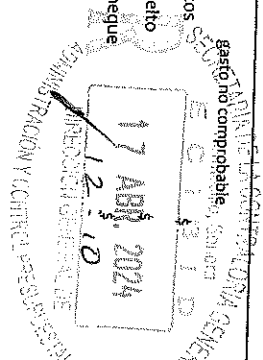 gasto no comprobable
cos
elto
negue
SECRETARÍA DE LA CONTRALORÍA GENERAL
R E C I B I D
17 ABR. 2021
12:10
DIRECCIÓN GENERAL DE
ADMINISTRACIÓN Y CONTROL PRESUPUESTAL